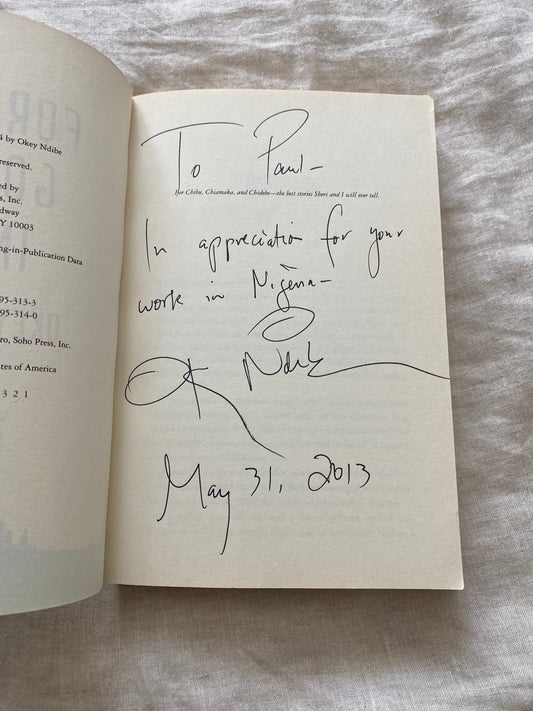 4 by Okey Ndibe
reserved.
ed by
s, Inc.
dway
Y 10003
ng-in-Publication Data
95-313-3
95-314-0
ro, Soho Press, Inc.
tes of America
3 2 1
To Paul–
For Chibu, Chiamaka, and Chidebe—the best stories Sheri and I will ever tell.
In appreciation for your
work in Nigeria–
Ok Ndibe
May 31, 2013